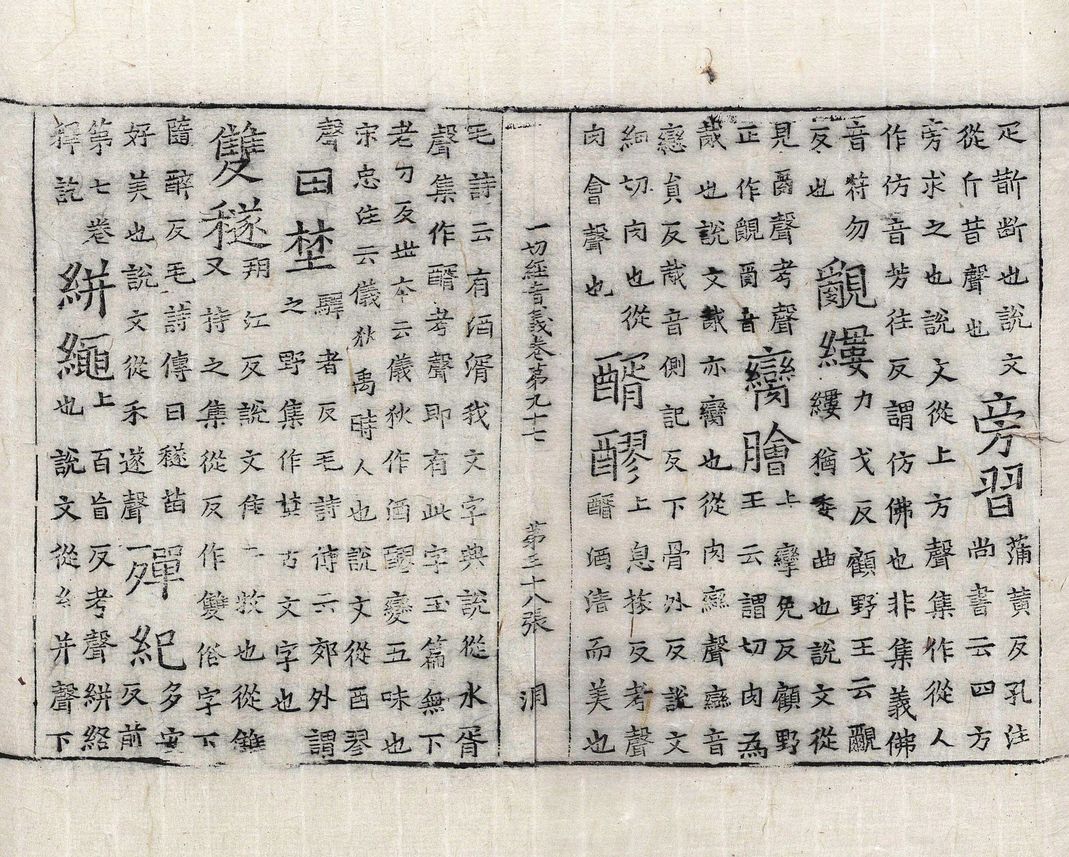 疋斮断也說文 旁習 蒲黄反孔注
從斤昔聲也 尚書云四方
旁求之也說文從上方聲集作從人
作仿音芳往反謂仿佛也非集義佛
音符勿 覼縷 力戈反顧野王云覼
反也 縷猶委曲也說文從
見𤔔聲考聲 臠膾 上攣免反顧野
正作覶𤔔音 王云謂切肉為
胾也說文胾亦臠也從肉䜌聲䜌音
戀負反胾音側記反下骨外反說文
細切肉也從 醑醪 上息㨖反考聲
肉會聲也 醑酒清而美也
一切經音義卷第九十七 第三十八張 洞
毛詩云有酒湑我文字典說從水胥
聲集作醑考聲即有此字玉篇無下
老刀反世本云儀狄作酒醪變五味也
宋忠注云儀狄禹時人也說文從酉翏
聲 曰埜 驛者反毛詩傳云郊外謂
之野集作埜古文字也
雙穟 朔江反說文隹二枚也從雔
又持之集從反作䨇俗字下
隨醉反毛詩傳曰穟苗
好美也說文從禾遂聲 殫紀 多安反前
第七卷 絣繩 上百萌反考聲絣絡
釋訖 也說文從糸并聲下